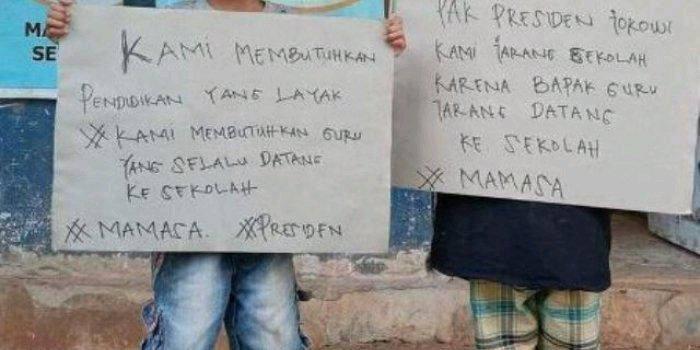 MA
SE
KAMI MEMBUTUHKAN
PENDIDIKAN YANG LAYAK
# KAMI MEMBUTUHKAN GURU
YANG SELALU DATANG
KE SEKOLAH
# MAMASA. #PRESIDEN
PAK PRESIDEN JOKOWI
KAMI JARANG SEKOLAH
KARENA BAPAK GURU
JARANG DATANG
KE SEKOLAH
# MAMASA